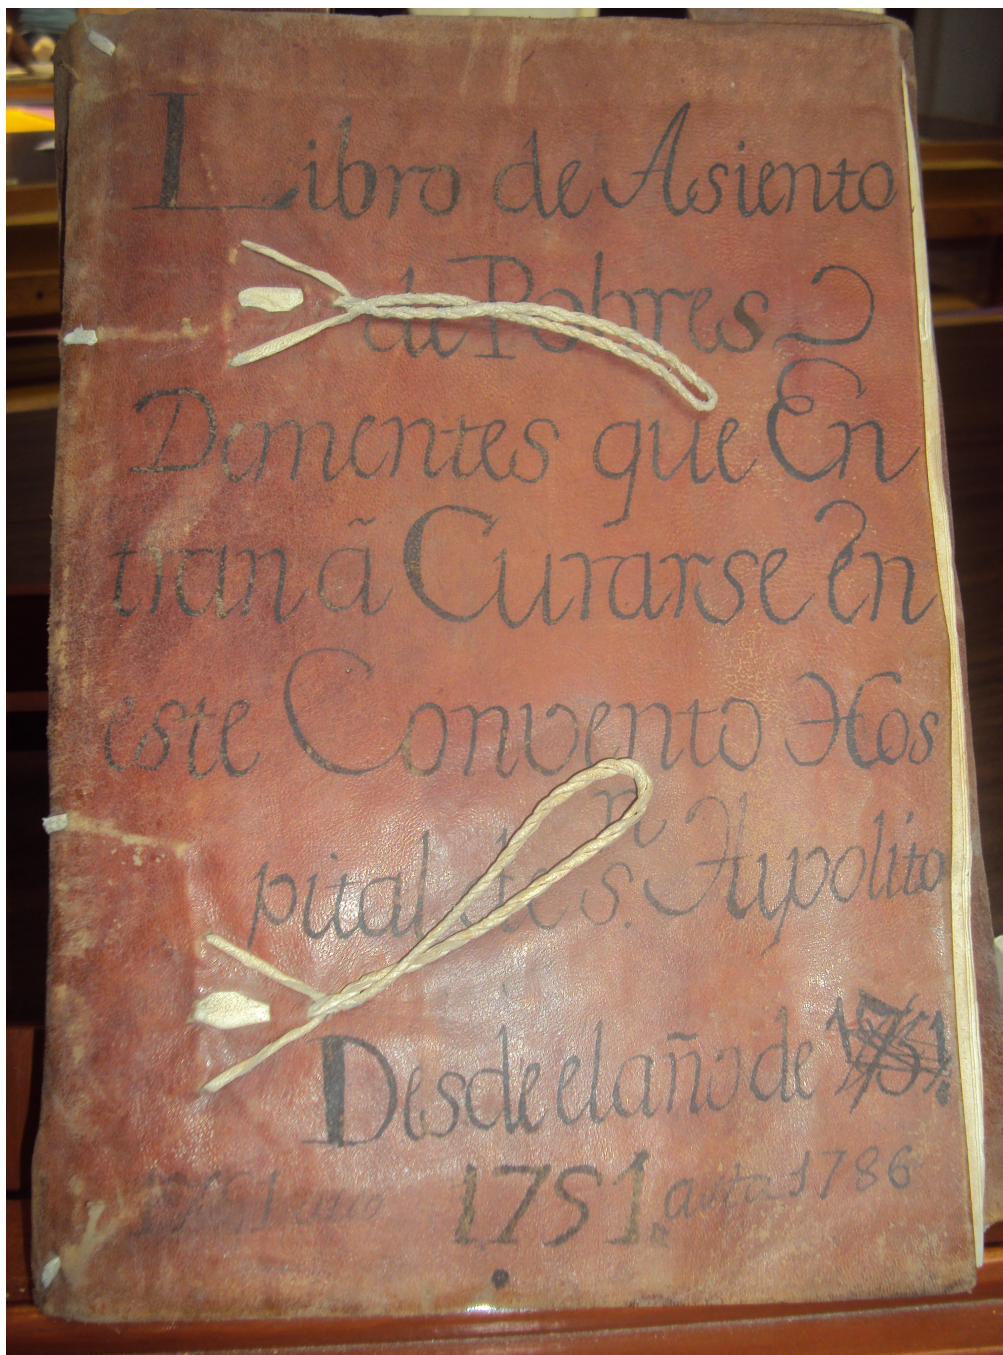 Libro de Asiento
de Pobres
Dementes que En
tran â Curarse en
este Convento Hos
pital de S.n Hypolito
Desde el año de 1751
1751. asta 1786